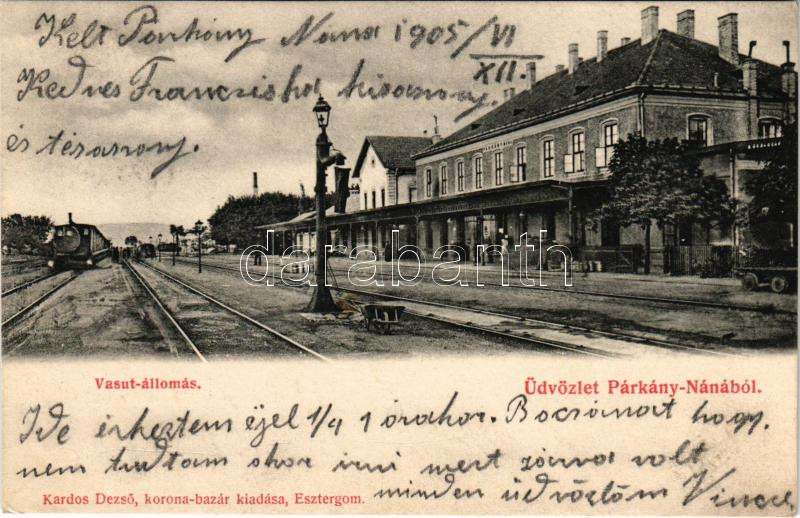 Kelt Párkány Nana 1905/VI
XII.
Kedves Franciska kisasony
és tésasony.
PÁRKÁNY-NÁNA
darabanth
Vasut-állomás.
Üdvözlet Párkány-Nánából.
Ide érkeztem éjel 1/4 1 órakor. Bocsánat hogy
nem tudtam akor irni mert zárva volt
minden üdvözlöm Vincze
Kardos Dezső, korona-bazár kiadása, Esztergom.